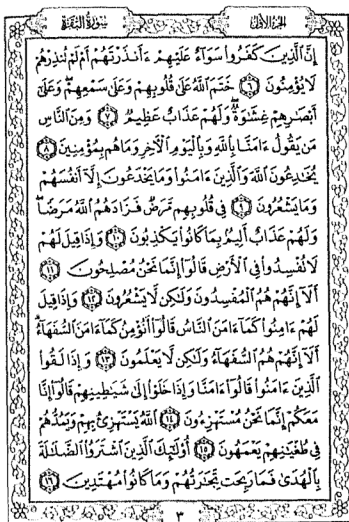 الجزء الأول سورة البقرة
إِنَّ ٱلَّذِينَ كَفَرُوا۟ سَوَآءٌ عَلَيْهِمْ ءَأَنذَرْتَهُمْ أَمْ لَمْ تُنذِرْهُمْ
لَا يُؤْمِنُونَ ٦ خَتَمَ ٱللَّهُ عَلَىٰ قُلُوبِهِمْ وَعَلَىٰ سَمْعِهِمْ وَعَلَىٰٓ
أَبْصَٰرِهِمْ غِشَٰوَةٌ وَلَهُمْ عَذَابٌ عَظِيمٌ ٧ وَمِنَ ٱلنَّاسِ
مَن يَقُولُ ءَامَنَّا بِٱللَّهِ وَبِٱلْيَوْمِ ٱلْءَاخِرِ وَمَا هُم بِمُؤْمِنِينَ ٨
يُخَٰدِعُونَ ٱللَّهَ وَٱلَّذِينَ ءَامَنُوا۟ وَمَا يَخْدَعُونَ إِلَّآ أَنفُسَهُمْ
وَمَا يَشْعُرُونَ ٩ فِى قُلُوبِهِم مَّرَضٌ فَزَادَهُمُ ٱللَّهُ مَرَضًا
وَلَهُمْ عَذَابٌ أَلِيمٌۢ بِمَا كَانُوا۟ يَكْذِبُونَ ١٠ وَإِذَا قِيلَ لَهُمْ
لَا تُفْسِدُوا۟ فِى ٱلْأَرْضِ قَالُوٓا۟ إِنَّمَا نَحْنُ مُصْلِحُونَ ١١
أَلَآ إِنَّهُمْ هُمُ ٱلْمُفْسِدُونَ وَلَٰكِن لَّا يَشْعُرُونَ ١٢ وَإِذَا قِيلَ
لَهُمْ ءَامِنُوا۟ كَمَآ ءَامَنَ ٱلنَّاسُ قَالُوٓا۟ أَنُؤْمِنُ كَمَآ ءَامَنَ ٱلسُّفَهَآءُ
أَلَآ إِنَّهُمْ هُمُ ٱلسُّفَهَآءُ وَلَٰكِن لَّا يَعْلَمُونَ ١٣ وَإِذَا لَقُوا۟
ٱلَّذِينَ ءَامَنُوا۟ قَالُوٓا۟ ءَامَنَّا وَإِذَا خَلَوْا۟ إِلَىٰ شَيَٰطِينِهِمْ قَالُوٓا۟ إِنَّا
مَعَكُمْ إِنَّمَا نَحْنُ مُسْتَهْزِءُونَ ١٤ ٱللَّهُ يَسْتَهْزِئُ بِهِمْ وَيَمُدُّهُمْ
فِى طُغْيَٰنِهِمْ يَعْمَهُونَ ١٥ أُو۟لَٰٓئِكَ ٱلَّذِينَ ٱشْتَرَوُا۟ ٱلضَّلَٰلَةَ
بِٱلْهُدَىٰ فَمَا رَبِحَت تِّجَٰرَتُهُمْ وَمَا كَانُوا۟ مُهْتَدِينَ ١٦
٣